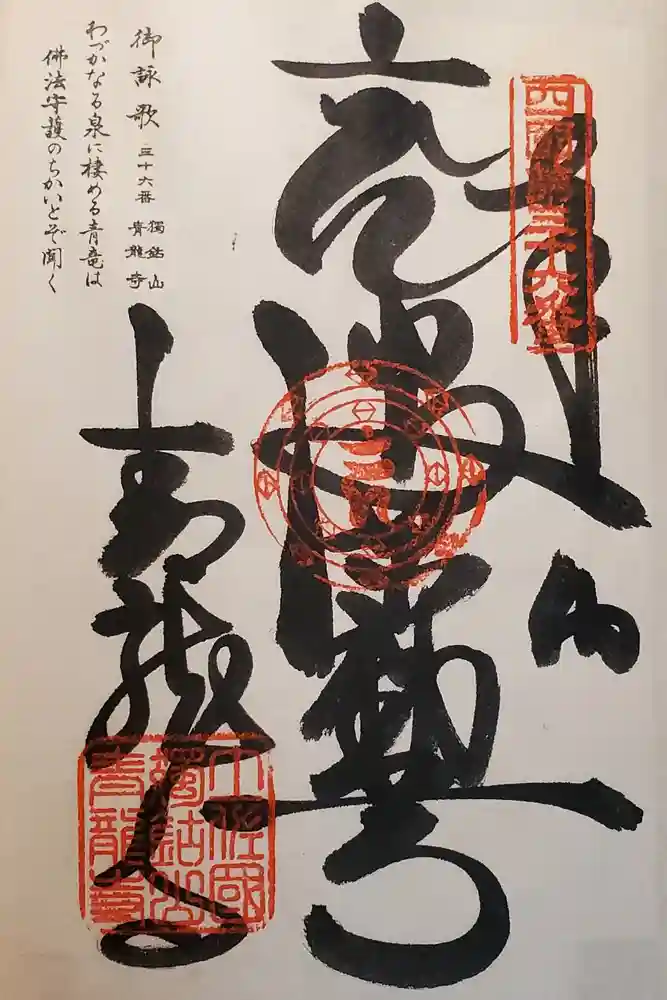 四國第三十六番
奉納
御詠歌 三十六番 獨鈷山 青龍寺
わづかなる泉に棲める青竜は
佛法守護のちかいとぞ聞く
青龍寺
土佐國
獨鈷山
青龍寺